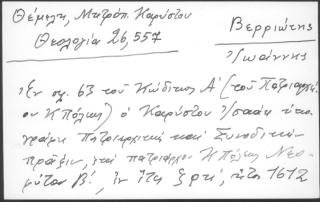 Θέμελη, Μητρόπ. Καρύστου
Θεολογία 26, 557
Βερριώτης
Ἰωάννης
Ἐν σελ. 63 τοῦ Κώδικος Α' (τοῦ Πατριαρχεί-
ου ΚΠόλεως) ὁ Καρύστου Ἰσαὰκ ὑπο-
γράφει Πατριαρχικὴ καὶ Συνοδικὴν
πρᾶξιν, ἐπὶ πατριάρχου ΚΠόλεως Νεο-
φύτου Β', ἐν ἔτει ζρκ', ἤτοι 1612